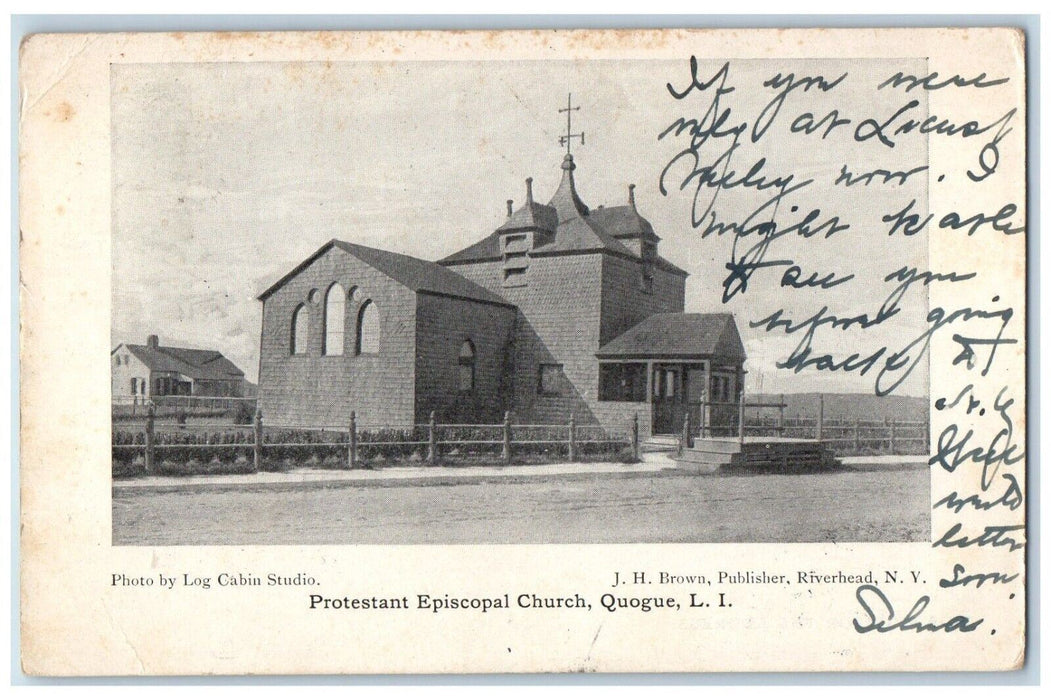 If you were
only at Locust
Valley now. I
might be able
to see you
before going
back to
N.Y.
Hope
write
letter
soon.
Selma.
Photo by Log Cabin Studio.
J. H. Brown, Publisher, Riverhead, N. Y.
Protestant Episcopal Church, Quogue, L. I.